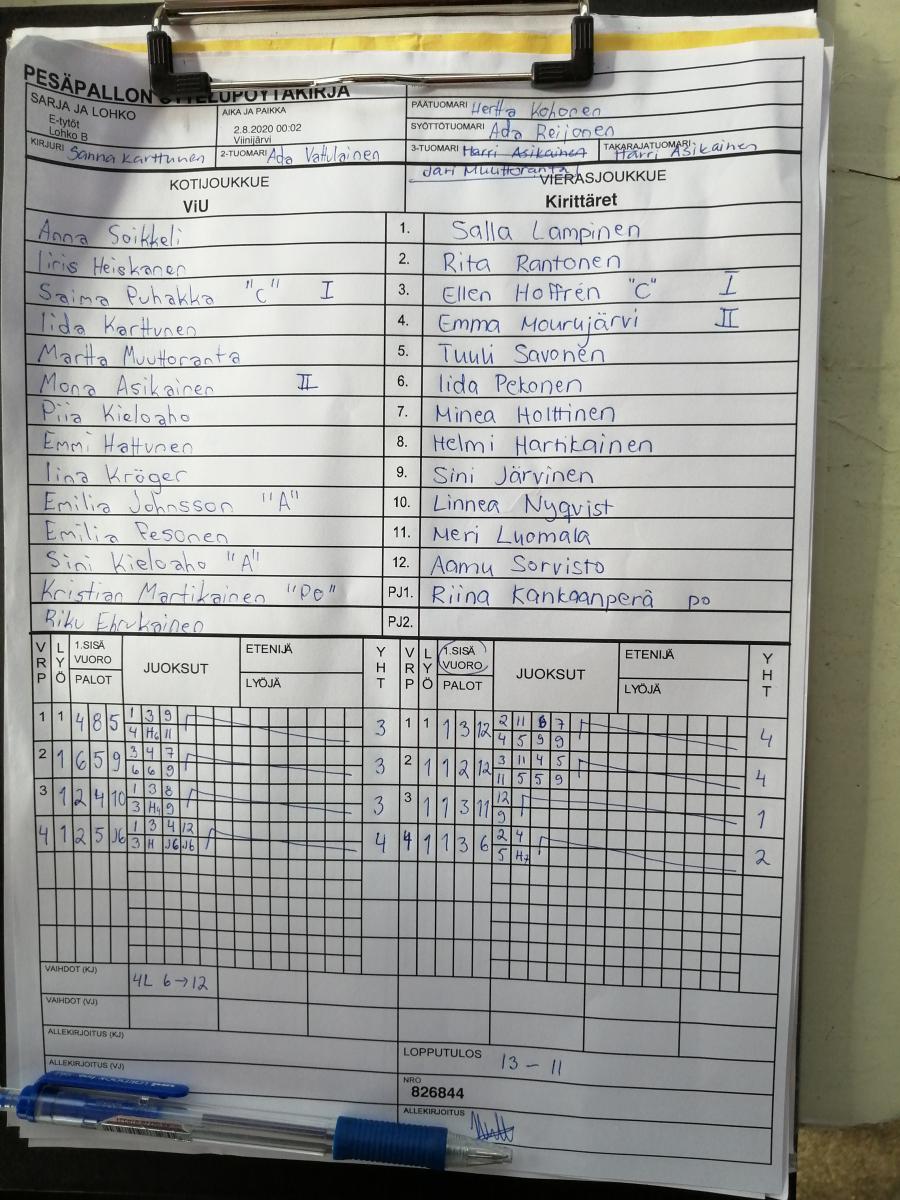 PESÄPALLON OTTELUPÖYTÄKIRJA
SARJA JA LOHKO
E-tytöt
Lohko B
AIKA JA PAIKKA
2.8.2020 00:02
Viinijärvi
PÄÄTUOMARI Hertta Kohonen
SYÖTTÖTUOMARI Ada Reijonen
KIRJURI Sanna Karttunen
2-TUOMARI Ada Vattulainen
3-TUOMARI Harri Asikainen
TAKARAJATUOMARI Harri Asikainen
Jari Muuttoranta
KOTIJOUKKUE
ViU
VIERASJOUKKUE
Kirittäret
Anna Soikkeli 1. Salla Lampinen
Iiris Heiskanen 2. Rita Rantonen
Saima Puhakka "C" I 3. Ellen Hoffrén "C" I
Iida Karttunen 4. Emma Mourujärvi II
Martta Muuttoranta 5. Tuuli Savonen
Mona Asikainen II 6. Iida Pekonen
Piia Kieloaho 7. Minea Holttinen
Emmi Hattunen 8. Helmi Hartikainen
Iina Kröger 9. Sini Järvinen
Emilia Johnsson "A" 10. Linnea Nyqvist
Emilia Pesonen 11. Meri Luomala
Sini Kieloaho "A" 12. Aamu Sorvisto
Kristian Martikainen "Po" PJ1. Riina Kankaanperä po
Riku PJ2.
VRP LYÖ 1.SISÄ VUORO PALOT JUOKSUT ETENIJÄ LYÖJÄ YHT VRP LYÖ 1.SISÄ VUORO PALOT JUOKSUT ETENIJÄ LYÖJÄ YHT
1 1 4 8 5 1 3 9 3 1 1 1 3 12 2 11 6 7 4
4 H6 11 4 5 9 9
2 1 6 5 9 3 4 7 3 2 1 1 2 12 3 11 4 5 4
6 6 9 11 5 5 9
3 1 2 4 10 1 3 8 3 3 1 1 3 11 12 1
3 H4 9 9
4 1 2 5 J6 1 3 4 12 4 4 1 1 3 6 2 4 2
3 H J6 J6 5 H7
VAIHDOT (KJ) 4L 6→12
VAIHDOT (VJ)
ALLEKIRJOITUS (KJ)
LOPPUTULOS 13 - 11
ALLEKIRJOITUS (VJ)
NRO
826844
ALLEKIRJOITUS